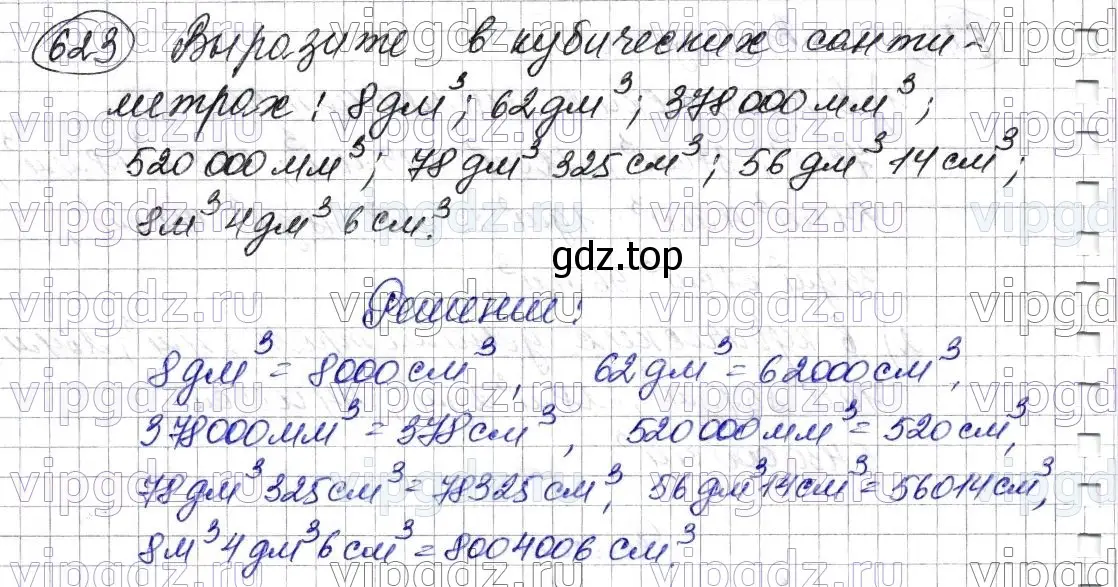 623 Выразите в кубических санти-
метрах: 8 дм³; 62 дм³; 378 000 мм³;
520 000 мм³; 78 дм³ 325 см³; 56 дм³ 14 см³;
8 м³ 4 дм³ 6 см³.
gdz.top
Решение:
8 дм³ = 8000 см³, 62 дм³ = 62000 см³,
378000 мм³ = 378 см³, 520 000 мм³ = 520 см³,
78 дм³ 325 см³ = 78325 см³, 56 дм³ 14 см³ = 56014 см³,
8 м³ 4 дм³ 6 см³ = 8004006 см³.
vipgdz.ru